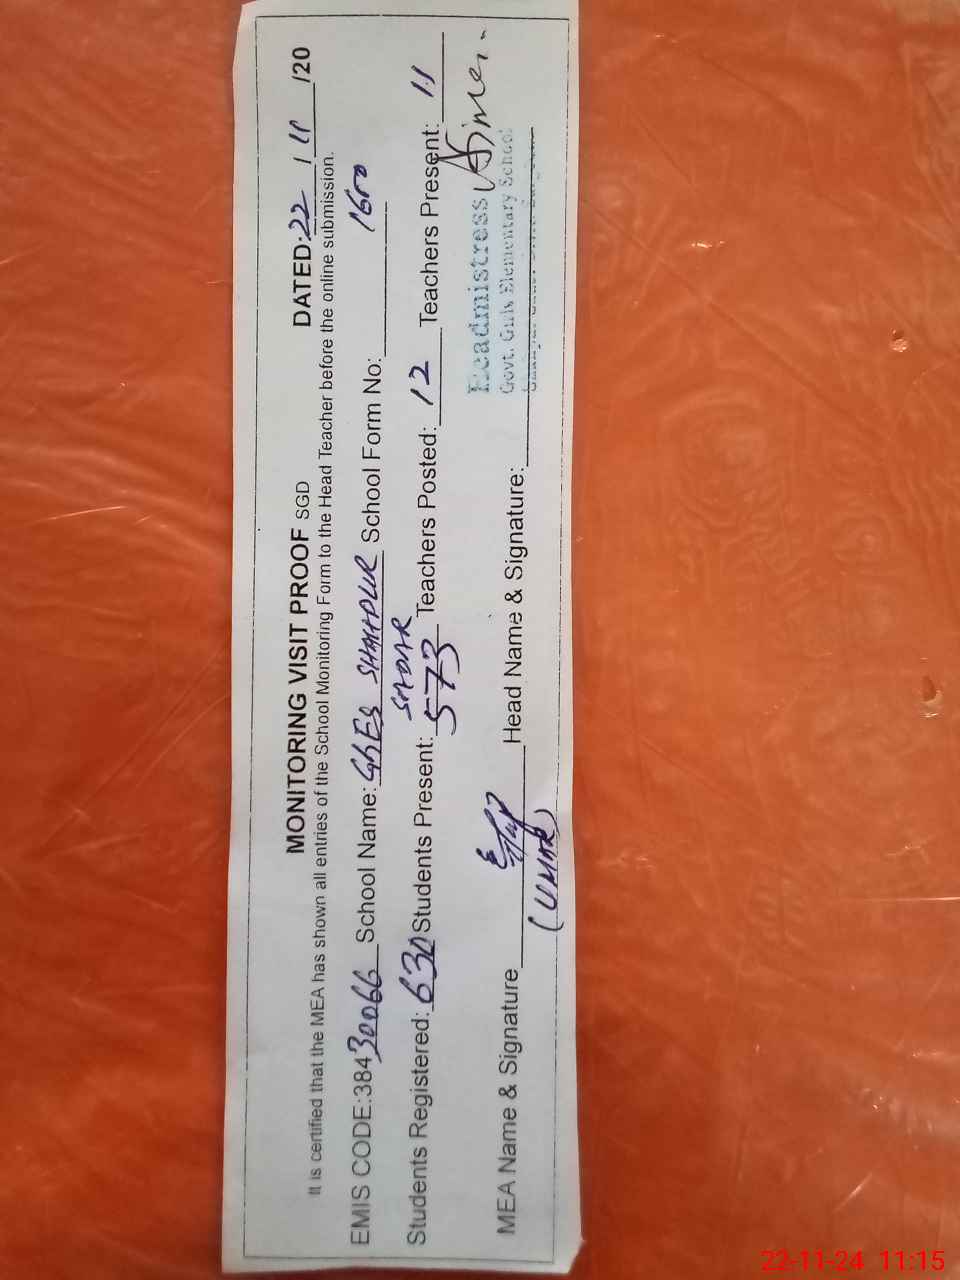 MONITORING VISIT PROOF SGD DATED: 22 / 11 /20
It is certified that the MEA has shown all entries of the School Monitoring Form to the Head Teacher before the online submission.
EMIS CODE:38430066 School Name: GGES SHAHPUR SADAR School Form No: 1600
Students Registered: 630 Students Present: 573 Teachers Posted: 12 Teachers Present: 11
MEA Name & Signature Head Name & Signature:
(UMAR)
Headmistress
Govt. Girls Elementary School
22-11-24 11:15